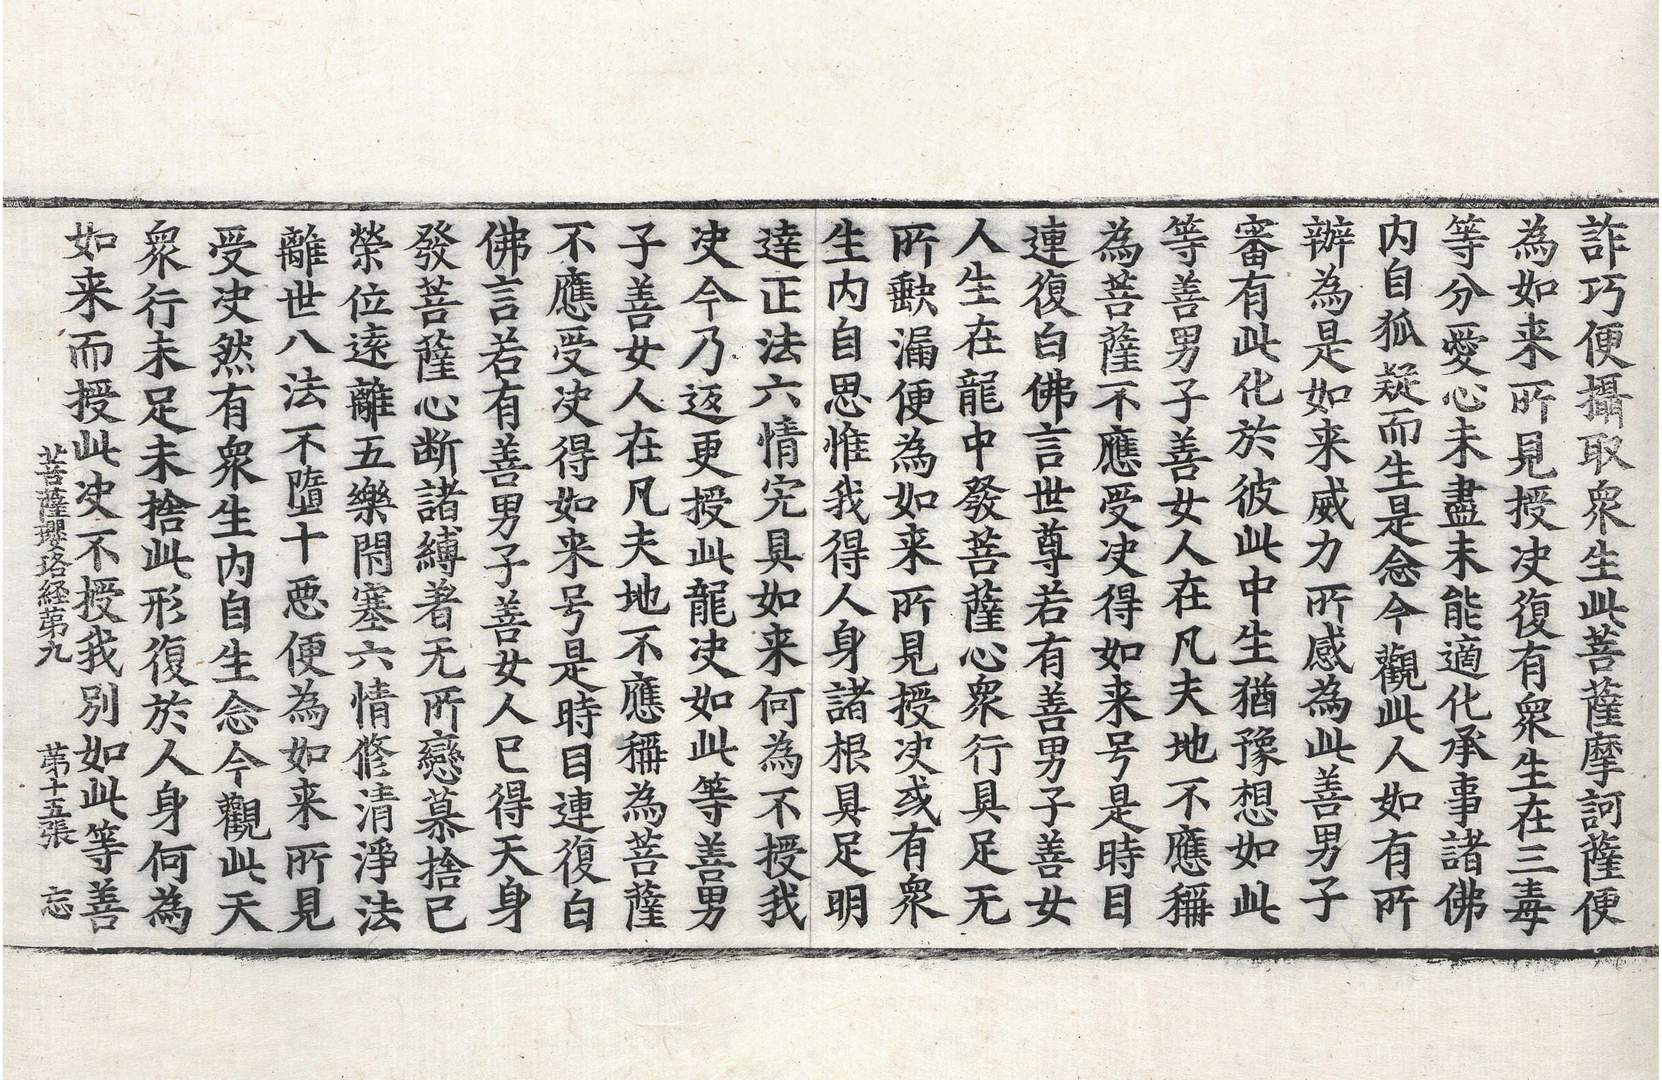 詐巧便攝取衆生此菩薩摩訶薩便
為如来所見授决復有衆生在三毒
等分愛心未盡未能適化承事諸佛
内自狐疑而生是念今觀此人如有所
辦為是如来威力所感為此善男子
審有此化於彼此中生猶豫想如此
等善男子善女人在凡夫地不應稱
為菩薩不應受决得如来号是時目
連復白佛言世尊若有善男子善女
人生在龍中發菩薩心衆行具足无
所歎漏便為如来所見授决或有衆
生内自思惟我得人身諸根具足明
達正法六情完具如来何為不授我
决今乃返更授此龍决如此等善男
子善女人在凡夫地不應稱為菩薩
不應受决得如来号是時目連復白
佛言若有善男子善女人已得天身
發菩薩心断諸縛著无所戀慕捨已
榮位逺離五樂閇塞六情修清淨法
離世八法不墮十惡便為如来所見
受决然有衆生内自生念今觀此天
衆行未足未捨此形復於人身何為
如来而授此决不授我別如此等善
菩薩瓔珞経苐九 苐十五張 忘